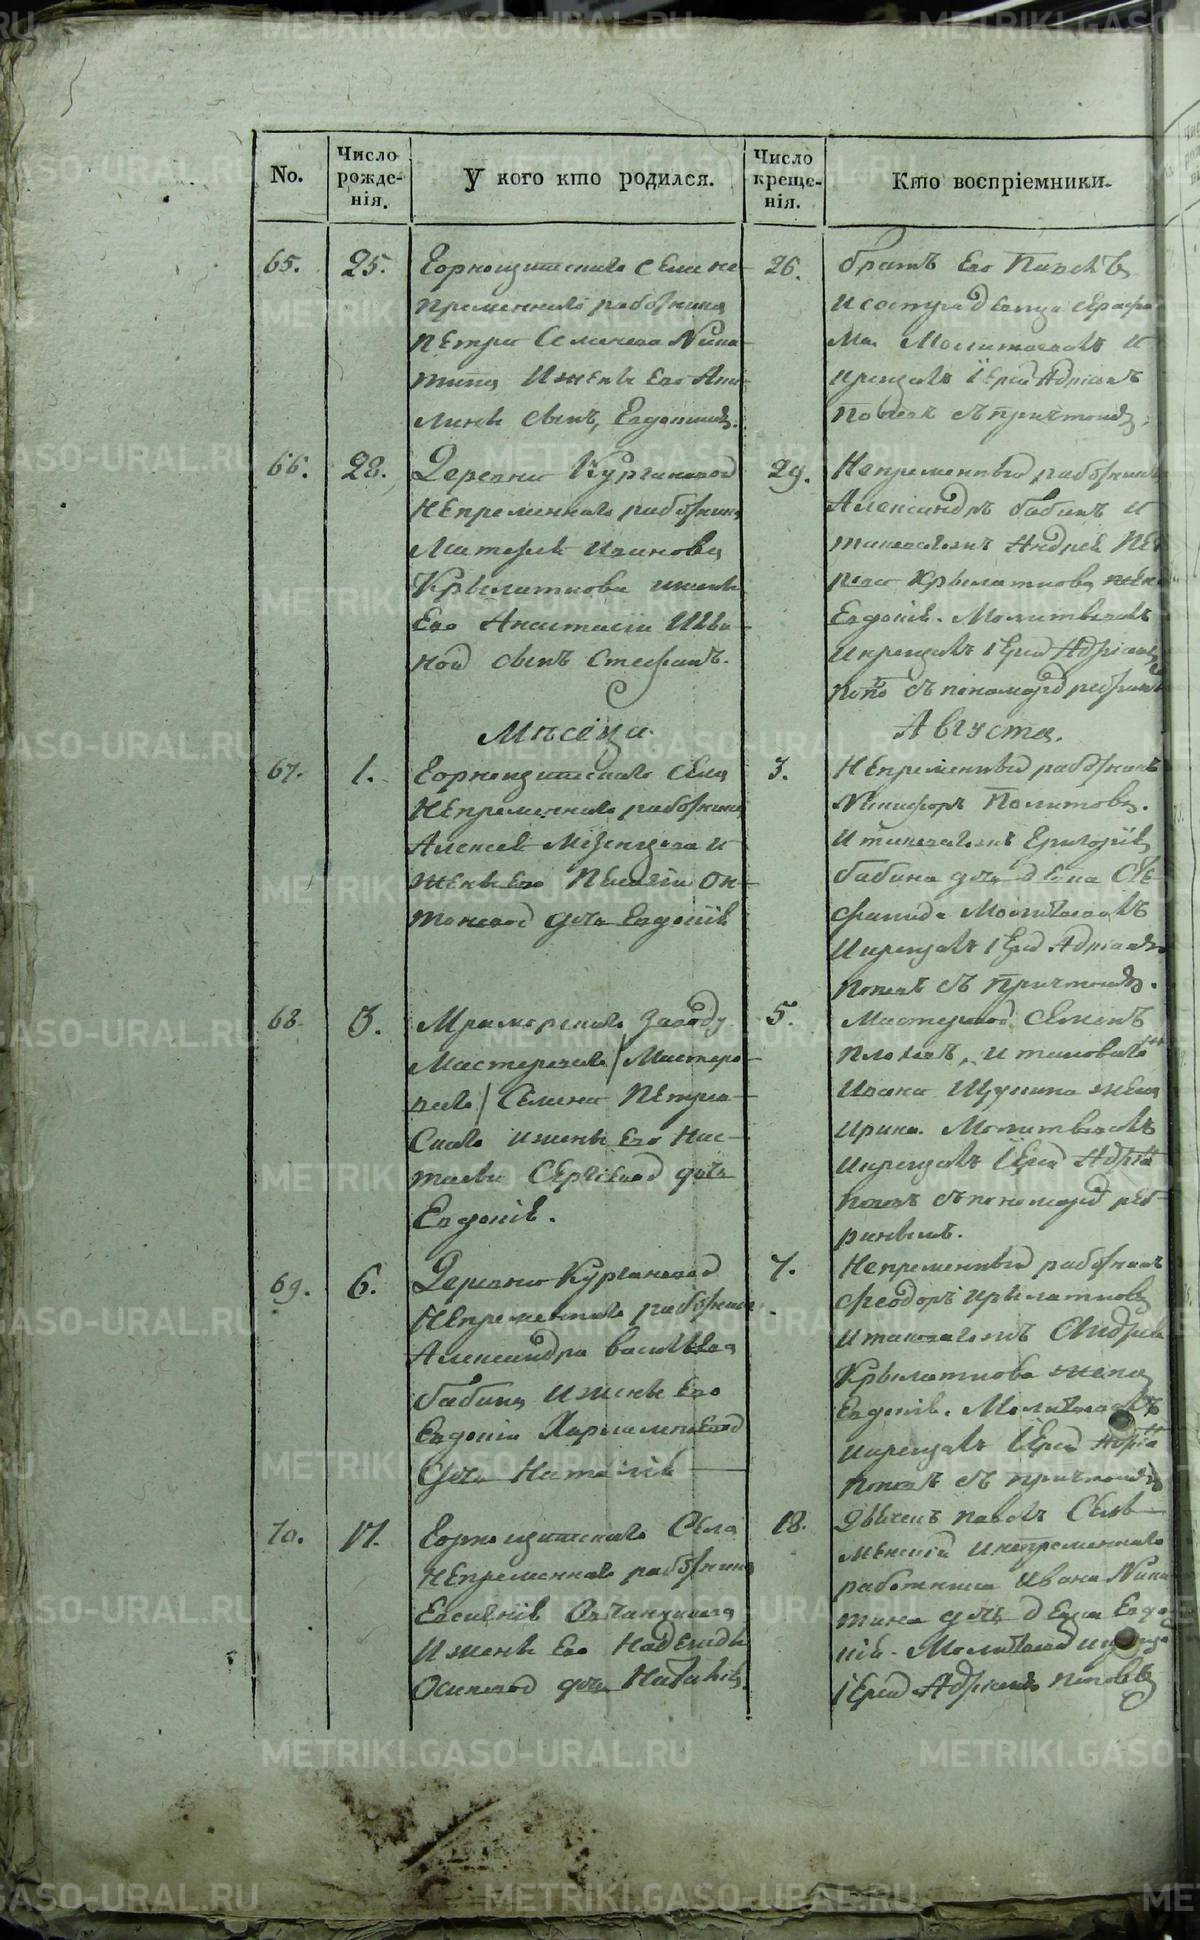 METRIKI.GASO-URAL.RU
No.
Число рожде-нія.
У кого кто родился.
Число креще-нія.
Кто воспріемники.
65.
25.
Горнощитскаго села не-
пременнаго работника
Петра Семенова Ники-
тина и жены его Аки-
лины сынъ, Евдокимъ.
26.
братъ его Павелъ
и сестра девица Серафи-
ма. Молитвовалъ и
крещалъ Іерей Адріанъ
Поповъ съ причтомъ.
66.
28.
Деревни Кургановой
непременнаго работника
Матфея Иванова
Крылаткова и жены
его Анастасіи Ива-
ной сынъ Стефанъ.
29.
Непременный работникъ
Александръ бабинъ и
таковагожъ Андрея Пет-
рова Крылаткова жена
Евдокія. Молитвовалъ
и крещалъ Іерей Адріанъ
попо съ пономарем
Мѣсяца
Августа.
67.
1.
Горнощитскаго села
Непременнаго работника
Алексея Мезенцова и
жены его Пелагіи Он-
тоновой дочь Евдокія
3.
Непременный работникъ
Никифоръ Политовъ.
и таковагожъ Григорія
бабина дочь девица Сте-
фанида Молитвовалъ
и крещалъ Іерей Адріанъ
Поповъ съ Причтомъ.
68.
3.
Мраморскаго заводу
Мастероваго / Мастеро-
ваго / Семена Петров-
скаго и жены его Нас-
тасьи Сергіевой дочь
Евдокія.
5.
Мастеровой Семенъ
и таковаго
Ивана Щупина жена
Ирина. Молитвовалъ
и крещалъ Іерей Адріанъ
Поповъ съ пономарем
69.
6.
Деревни Кургановой
Непременнаго работника
Александра Васильева
бабина и жены его
Евдокіи Харлампіевой
дочь Наталія
7.
Непременный работникъ
Феодоръ Крылатковъ
и таковагожъ Андрея
Крылаткова жена
Евдокія. Молитвовалъ
и крещалъ Іерей Адріанъ
Поповъ съ причтомъ
70.
17.
Горнощитскаго Села
Непременнаго работника
Евсигнія Овчинникова
и жены его Надежды
Осиповой дочь Наталія.
18.
Дьячекъ Павелъ Сель-
менскій и непременнаго
работника Ивана Ники-
тина дочь девица Евдо-
кія. Молитвовал и крещал
Іерей Адріанъ Поповъ